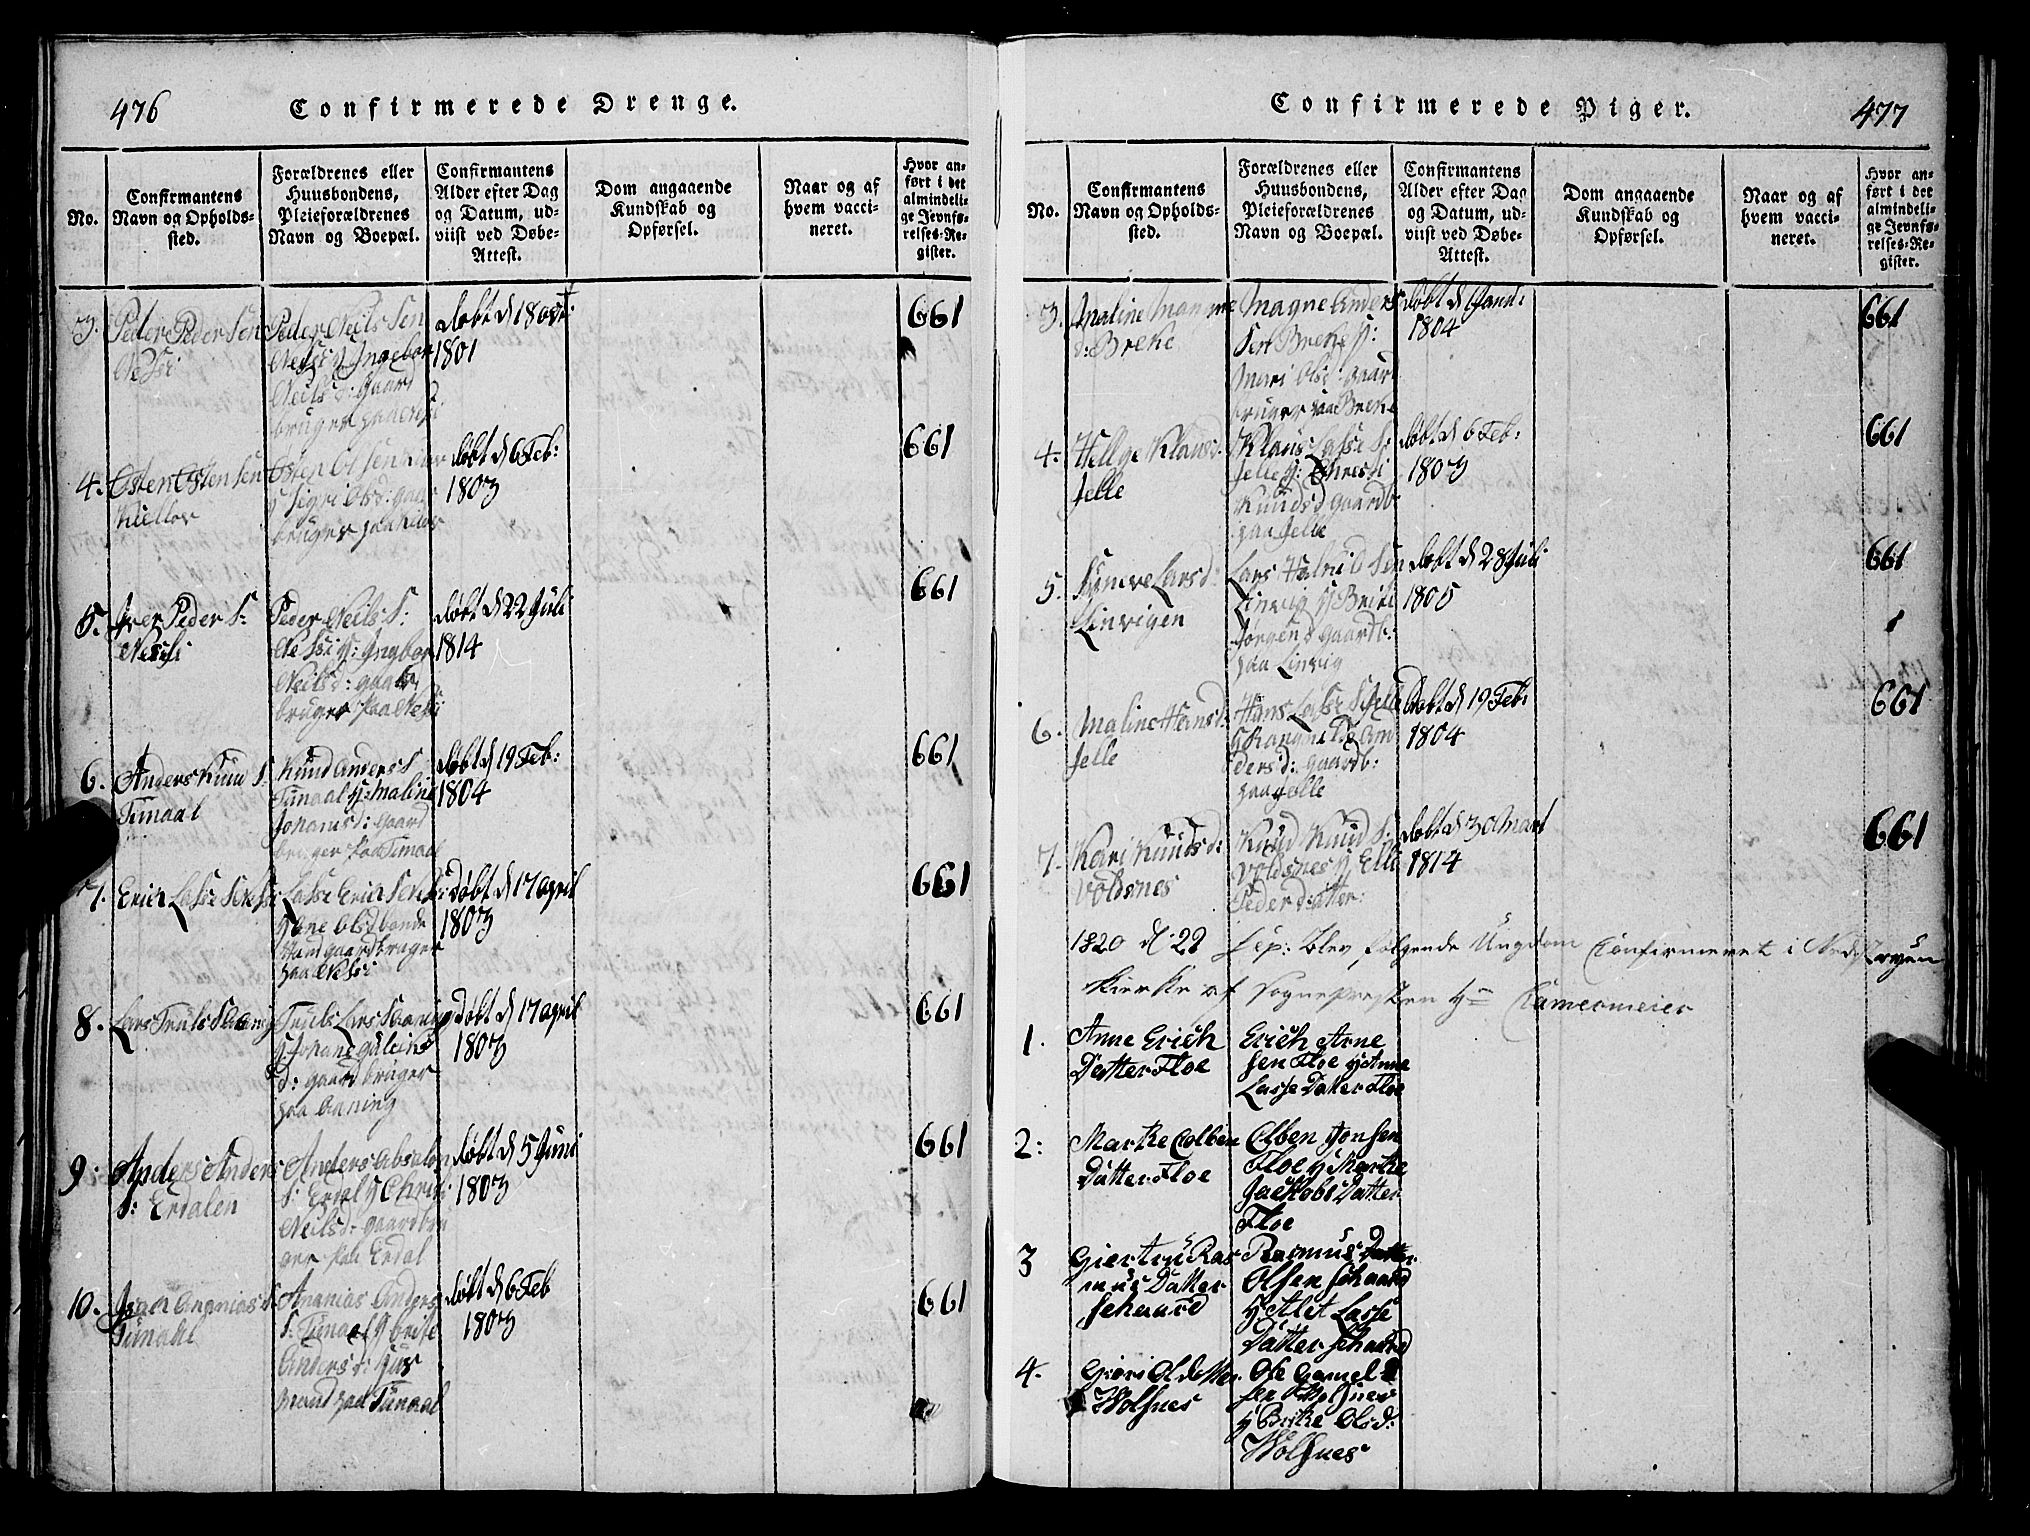 476
Confirmerede Drenge.
No.
Confirmantens
Navn og Opholds-
sted.
Forældrenes eller
Huusbondens,
Pleieforældrenes
Navn og Boepæl.
Confirmantens
Alder efter Dag
og Datum, ud-
viist ved Døbe-
Attest.
Dom angaaende
Kundskab og
Opførsel.
Naar og af
hvem vacci-
neret.
Hvor an-
ført i det
almindeli-
ge Jevnfø-
relses-Re-
gister.
3.
Peder Peder Sen
Nessi
Peder Neils Sen
Nessi & Ingebor
Neils d: gaard
bruger paa Nessi
døbt d
1801
661
4.
Osten Osten Sen
Osten Olsen
& Sigri Olsd: gaar
bruger paa
døbt d 6 Feb:
1803
661
5.
Iver Peder S:
Nessi
Peder Neils S:
Nessi &: Ingbor
Neilsd: gaar
bruger paa Nessi
døbt d 22 Juli
1814
661
6.
Anders Knud S:
Timaal
Knud Anders S
Timaal & Maline
Johansd: gaard
bruger paa Timaal
døbt d 19 Feb:
1804
661
7.
Erich Lasse S Nessi
Lasse Erich Sen
& ane Olsd bonde
Mand gaardbruger
paa Nessi
døbt d 17 april
1803
661
8.
Lars Truls S Aaning
Truls Lars S aaning
& Johane
d: gaard bruger
paa Aaning
døbt d 17 april
1803
661
9.
Anders Anders
S: Erdalen
Anders Absalon
S: Erdal & Christi
Neilsd: gaardbru
ger paa Erdal
døbt d 5 Juni
1803
661
10.
Ananias S
Timaal
Ananias Anders
S: Timaal & brite
Anders d: Hus
mand paa Timaal
døbt d 6 Feb
1803
661
Confirmerede Piger.
477
No.
Confirmantens
Navn og Opholds-
sted.
Forældrenes eller
Huusbondens,
Pleieforældrenes
Navn og Boepæl.
Confirmantens
Alder efter Dag
og Datum, ud-
viist ved Døbe-
Attest.
Dom angaaende
Kundskab og
Opførsel.
Naar og af
hvem vacci-
neret.
Hvor an-
ført i det
almindeli-
ge Jevnfø-
relses-Re-
gister.
3.
Maline Manne
d: Breke
Magne Anders
Sen Breke &:
Mari Olsd: gaar
bruger paa Breke
døbt d Janu:
1804
661
4.
Hellge Klausd:
Jelle
Klaus Lasse S:
Jelle &: Chresti
Knuds d gaardb
paa Jelle
døbt d 6 Feb:
1803
661
5.
Synneve Larsd:
Linvigen
Lars Halvid Sen
Linvig & Brite
Jørgen d gaardb:
paa Linvig
døbt d 28 Juli
1805
661
6.
Maline Hansd:
Jelle
Hans Lasse S Jelle
& Rangni De An
ders d: gaardb:
paa Jelle
døbt d 19 Feb:
1804
661
7.
Kari Knuds d:
Voldsnes
Knud Knud S:
Voldsnes & Elle
Peder datter:
døbt d 30 Mart
1814
661
1820 d: 22 Sep: Blev følgende Ungdom Confirmeret i
Kierke af Sognepresten Hr Camermeier
1.
Anne Erich
Datter Floe
Erich Arne
sen Floe & Anne
Lasse Datter Floe
2:
Marthe Colben
Datter Floe
Olben Jonsen
Floe & Marthe
Jackobs Datter
Floe
3
Giertru Ras
mus Datter
Schaard
Rasmus
Olsen Schaard
& Alet Lasse
Datter Schaard
4.
Giøri Ol datter
Wolsnes
Ole Gamel
sen Wolsnes
& Brithe Olsd:
Wolsnes